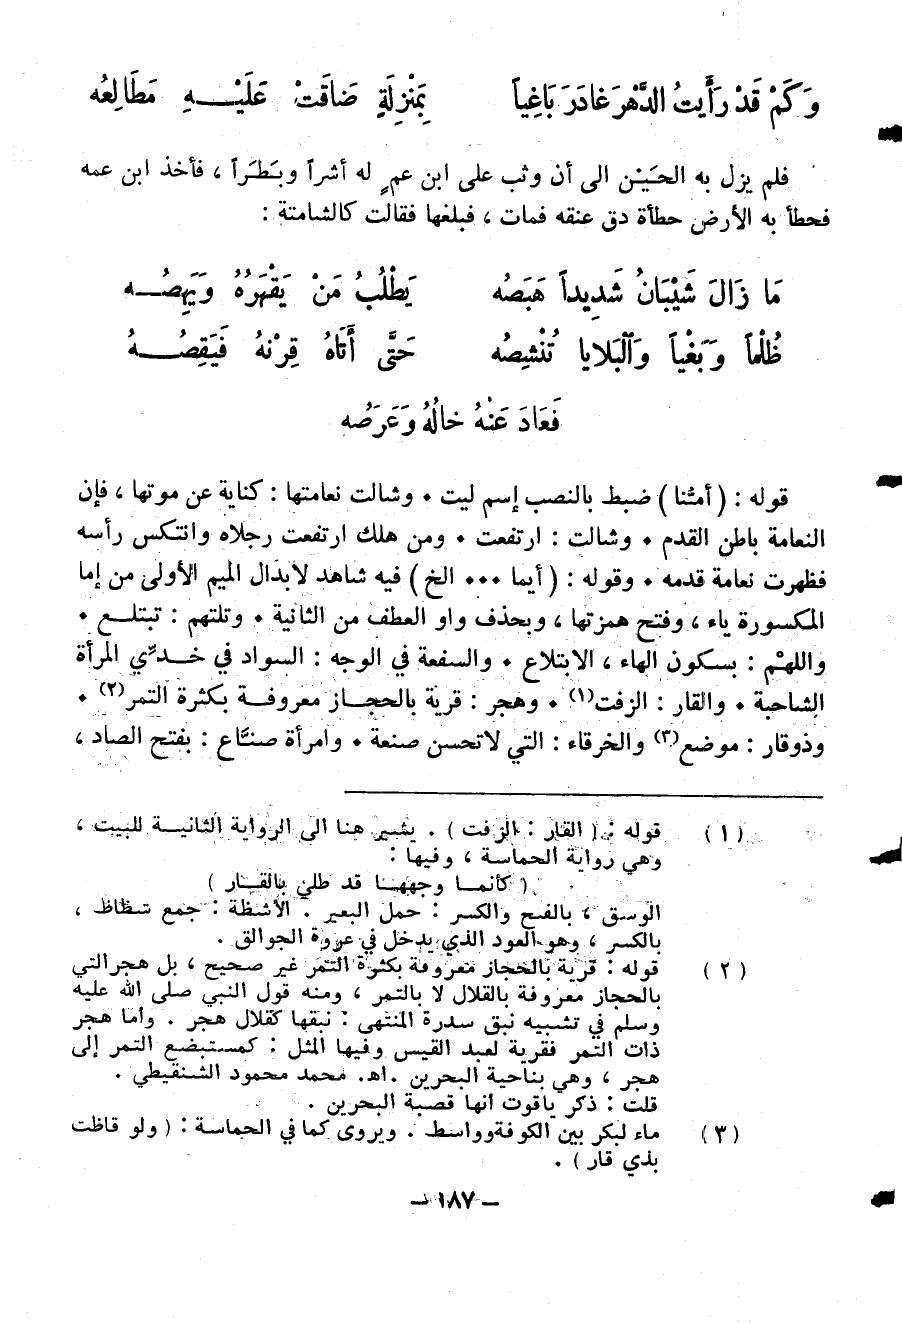 وَكَمْ قَدْ رَأَيتُ الدَّهْرَ غادَرَ بَاغِياً بِمَنْزِلَةٍ ضَاقَتْ عَلَيْــــهِ مَطَالِعُه
فلم يزل به الحَيْن الى أن وثب على ابن عمٍ له أشراً وبَطَراً ، فأخذ ابن عمه
فحطأ به الأرض حطأة دق عنقه فمات ، فبلغها فقالت كالشامتة :
مَا زَالَ شَيْبَانُ شَدِيداً هَبَصُه يَطْلُبُ مَنْ يَقْهَرُهُ وَيَهِصُــه
ظُلْماً وَبَغْياً وَالْبَلايا تُنْشِصُه حَتَّى أَتَاهُ قِرْنهُ فَيَقِصُــــهُ
فَعَادَ عَنْهُ خالُهُ وَعَرَصُه
قوله : ( أمتُنا ) ضبط بالنصب إسم ليت ٠ وشالت نعامتها : كناية عن موتها ، فإن
النعامة باطن القدم ٠ وشالت : ارتفعت ٠ ومن هلك ارتفعت رجلاه وانتكس رأسه
فظهرت نعامة قدمه ٠ وقوله : ( أيما ٠٠٠ الخ ) فيه شاهد لابدال الميم الأولى من إما
المكسورة ياء ، وفتح همزتها ، وبحذف واو العطف من الثانية ٠ وتلتهم : تبتلــع ٠
واللهْم : بسكون الهاء ، الابتلاع ٠ والسفعة في الوجه : السواد في خــدّي المرأة
الشاحبة ٠ والقار : الزفت(١) ٠ وهجر : قرية بالحجــاز معروفــة بكثرة التمر(٢) ٠
وذوقار : موضع(٣) والخرقاء : التي لاتحسن صنعة ٠ وامرأة صنَّاع : بفتح الصاد ،
(١) قوله : ( القار : الزفت ) . يشير هنا الى الرواية الثانيــة للبيت ،
وهي رواية الحماسة ، وفيها :
( كأنمــا وجههــا قد طلي بالقــار )
الوسق ، بالفتح والكسر : حمل البعير . الأشظة : جمع شظاظ ،
بالكسر ، وهو العود الذي يدخل في عروة الجوالق .
(٢) قوله : قرية بالحجاز معروفة بكثرة التمر غير صحيح ، بل هجرالتي
بالحجاز معروفة بالقلال لا بالتمر ، ومنه قول النبي صلى الله عليه
وسلم في تشبيه نبق سدرة المنتهى : نبقها كقلال هجر . وأما هجر
ذات التمر فقرية لعبد القيس وفيها المثل : كمستبضع التمر إلى
هجر ، وهي بناحية البحرين .اهـ. محمد محمود الشنقيطي .
قلت : ذكر ياقوت انها قصبة البحرين .
(٣) ماء لبكر بين الكوفةوواسط . ويروى كما في الحماسة : ( ولو قاظت
بذي قار ) .
– ١٨٧ –